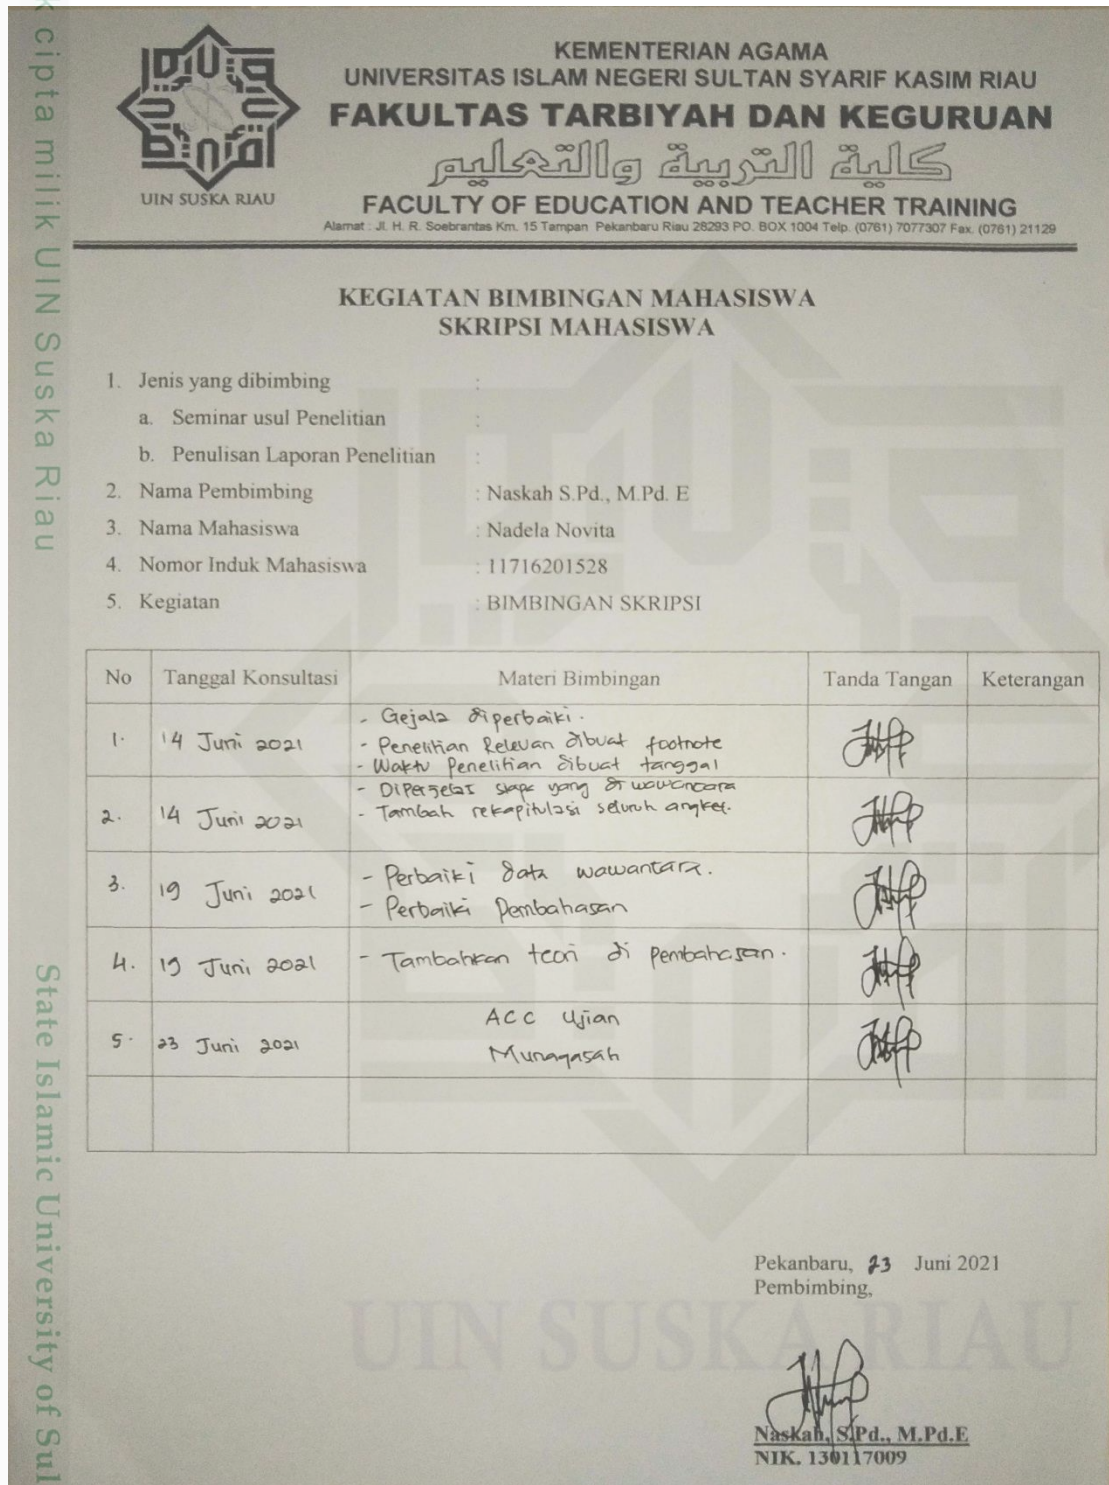 k cipta milik UIN Suska Riau
State Islamic University of Sul
UIN SUSKA RIAU
KEMENTERIAN AGAMA
UNIVERSITAS ISLAM NEGERI SULTAN SYARIF KASIM RIAU
FAKULTAS TARBIYAH DAN KEGURUAN
كلية التربية والتعليم
FACULTY OF EDUCATION AND TEACHER TRAINING
Alamat : Jl. H. R. Soebrantas Km. 15 Tampan Pekanbaru Riau 28293 PO. BOX 1004 Telp. (0761) 7077307 Fax. (0761) 21129
KEGIATAN BIMBINGAN MAHASISWA
SKRIPSI MAHASISWA
1. Jenis yang dibimbing :
a. Seminar usul Penelitian :
b. Penulisan Laporan Penelitian :
2. Nama Pembimbing : Naskah S.Pd., M.Pd. E
3. Nama Mahasiswa : Nadela Novita
4. Nomor Induk Mahasiswa : 11716201528
5. Kegiatan : BIMBINGAN SKRIPSI
No Tanggal Konsultasi Materi Bimbingan Tanda Tangan Keterangan
1. 14 Juni 2021
- Gejala diperbaiki.
- Penelitian Relevan dibuat footnote
- Waktu Penelitian dibuat tanggal
2. 14 Juni 2021
- Diperjelas siapa yang di wawancara
- Tambah rekapitulasi seluruh angket.
3. 19 Juni 2021
- Perbaiki data wawancara.
- Perbaiki Pembahasan
4. 19 Juni 2021
- Tambahkan teori di pembahasan.
5. 23 Juni 2021
ACC Ujian
Munaqasah
Pekanbaru, 23 Juni 2021
Pembimbing,
UIN SUSKA RIAU
Naskah, S.Pd., M.Pd.E
NIK. 130117009